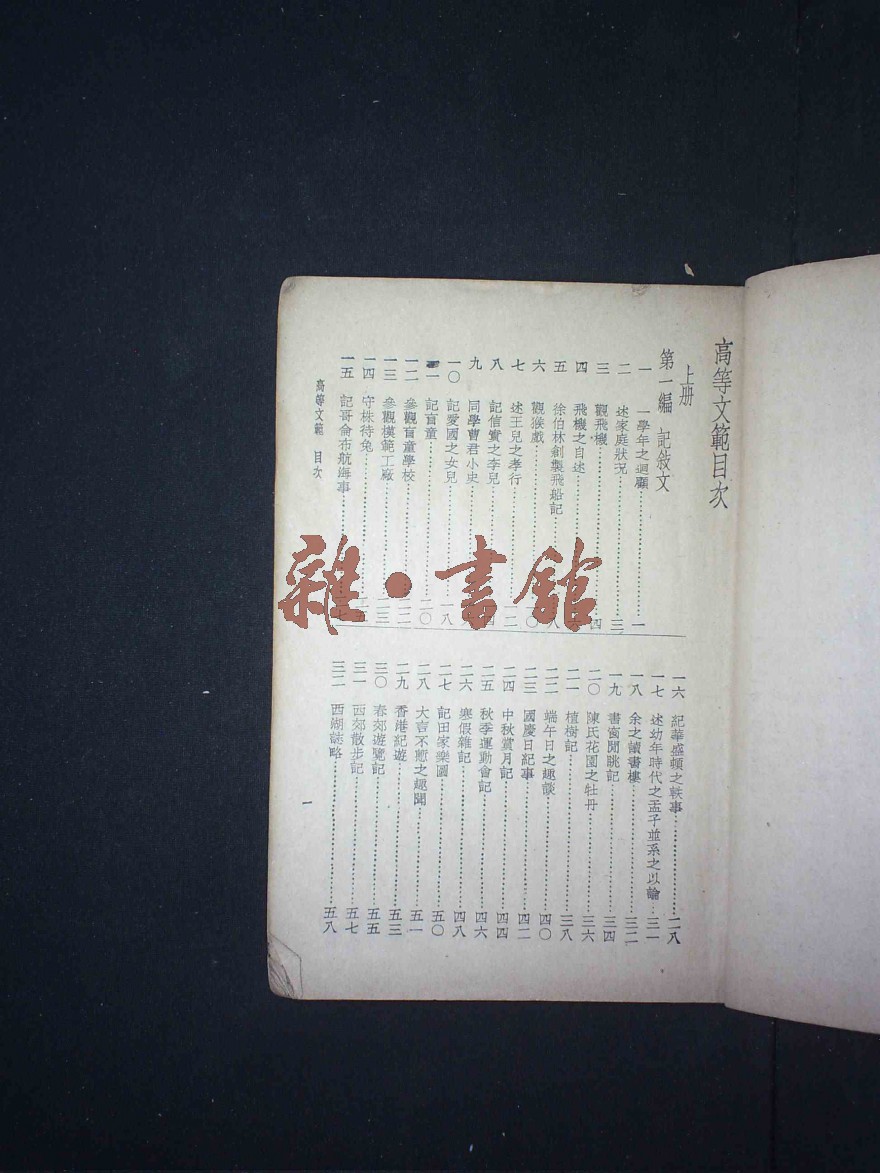 高等文範目次
上册
第一編　記敘文
一　一學年之迴顧……一
二　述家庭狀况……三
三　觀飛機……四
四　飛機之自述……
五　徐伯林創製飛船記……八
六　觀猴戲……〇
七　述王兒之孝行……二
八　記信實之李兒……四
九　同學曹君小史……
一〇　記愛國之女兒……一八
一一　記盲童……二〇
一二　參觀盲童學校……二二
一三　參觀模範工廠……二三
一四　守株待兔……
一五　記哥侖布航海事……
一六　紀華盛頓之軼事……二八
一七　述幼年時代之孟子並系之以論……三一
一八　余之讀書樓……三二
一九　書窗閒眺記……三四
二〇　陳氏花園之牡丹……三六
二一　植樹記……三八
二二　端午日之趣談……四〇
二三　國慶日紀事……四二
二四　中秋賞月記……四四
二五　秋季運動會記……四六
二六　寒假雜記……四八
二七　記田家樂圖……五〇
二八　大吉不慙之趣聞……五一
二九　香港紀遊……五三
三〇　春郊遊覽記……五五
三一　西郊散步記……五七
三二　西湖誌略……五八
高等文範　目次
一
雜·書館